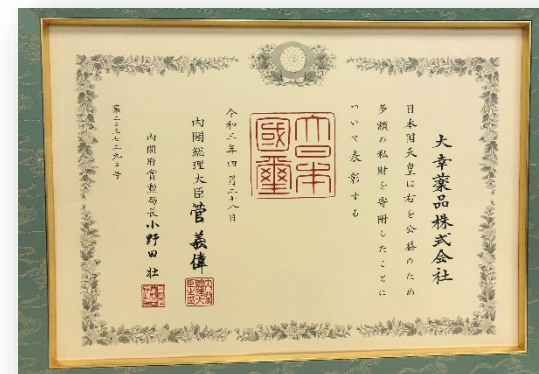 大幸薬品株式会社
日本国天皇は右を公益のため
多額の私財を寄附したことに
ついて表彰する
大日本
國璽
令和三年四月二十八日
内閣総理大臣 菅義偉
内閣府賞勲局長 小野田壮